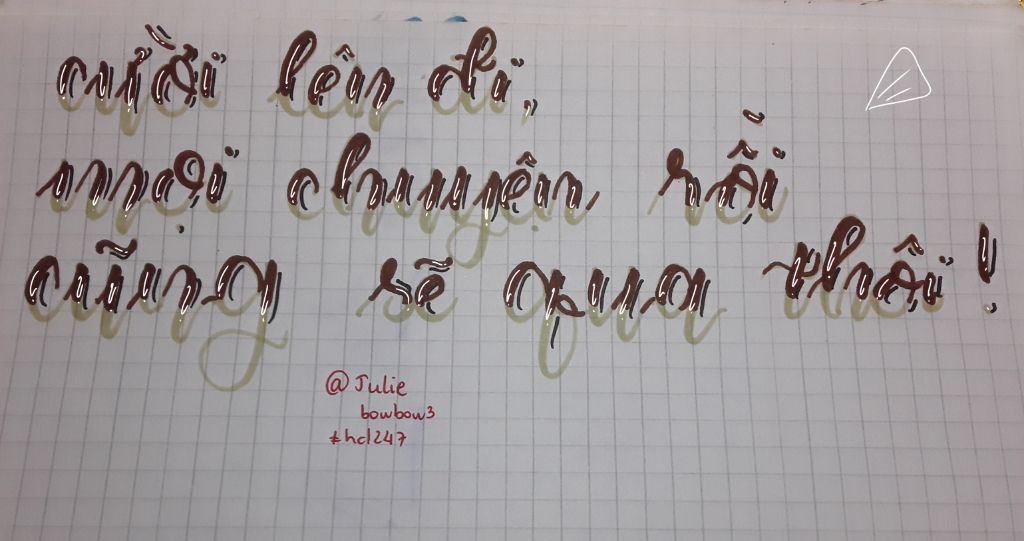 cười lên đi,
mọi chuyện rồi
cũng sẽ qua thôi!
@Julie
bowbow3
#hd247